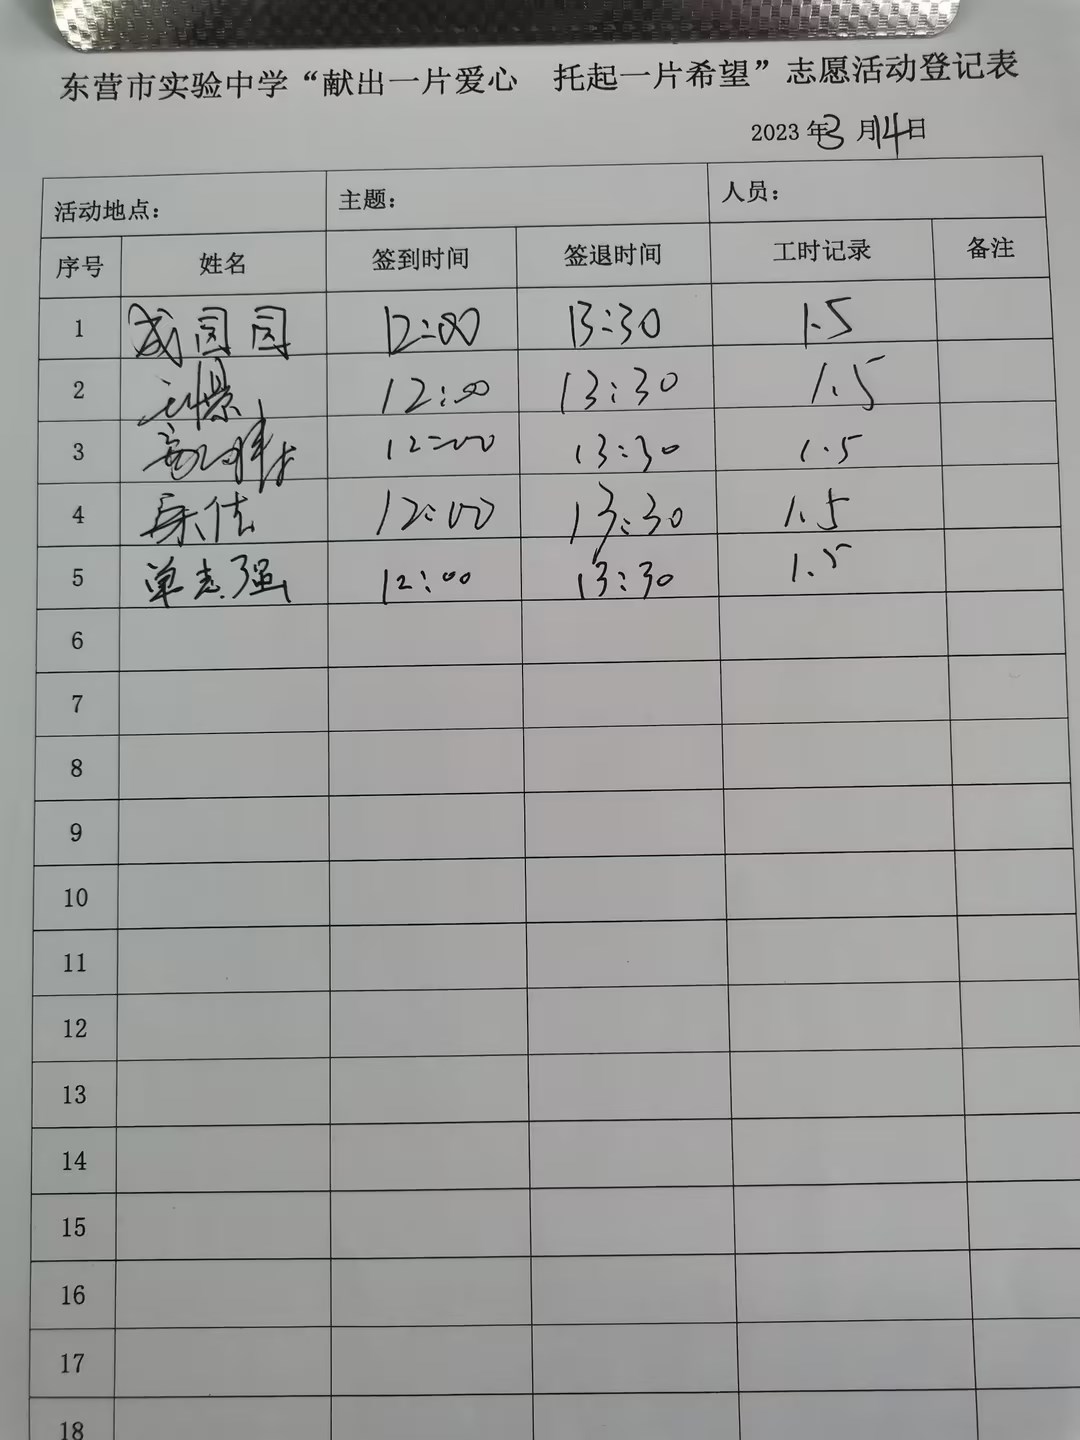 东营市实验中学“献出一片爱心 托起一片希望”志愿活动登记表
2023 年3月14日
活动地点： 主题： 人员：
序号 姓名 签到时间 签退时间 工时记录 备注
1 成园园 12:00 13:30 1.5
2 12:00 13:30 1.5
3 12:00 13:30 1.5
4 12:00 13:30 1.5
5 单志强 12:00 13:30 1.5
6
7
8
9
10
11
12
13
14
15
16
17
18